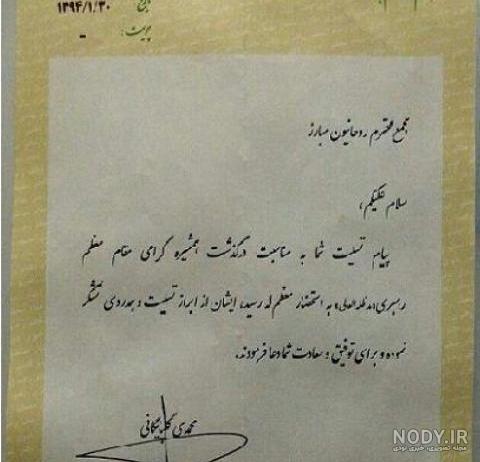 تاریخ: ۱۳۹۴/۱/۳۰
پیوست: -
مجمع محترم روحانیون مبارز
سلام علیکم،
پیام تسلیت شما به مناسبت درگذشت همشیره گرامی مقام معظم
رهبری(مدظله‌العالی) به استحضار معظم له رسید، ایشان از ابراز تسلیت و همدردی تشکر
نموده و برای توفیق و سعادت شما دعا فرمودند.
محمدی گلپایگانی
NODY.IR
مجله تصویری، خبری نودی